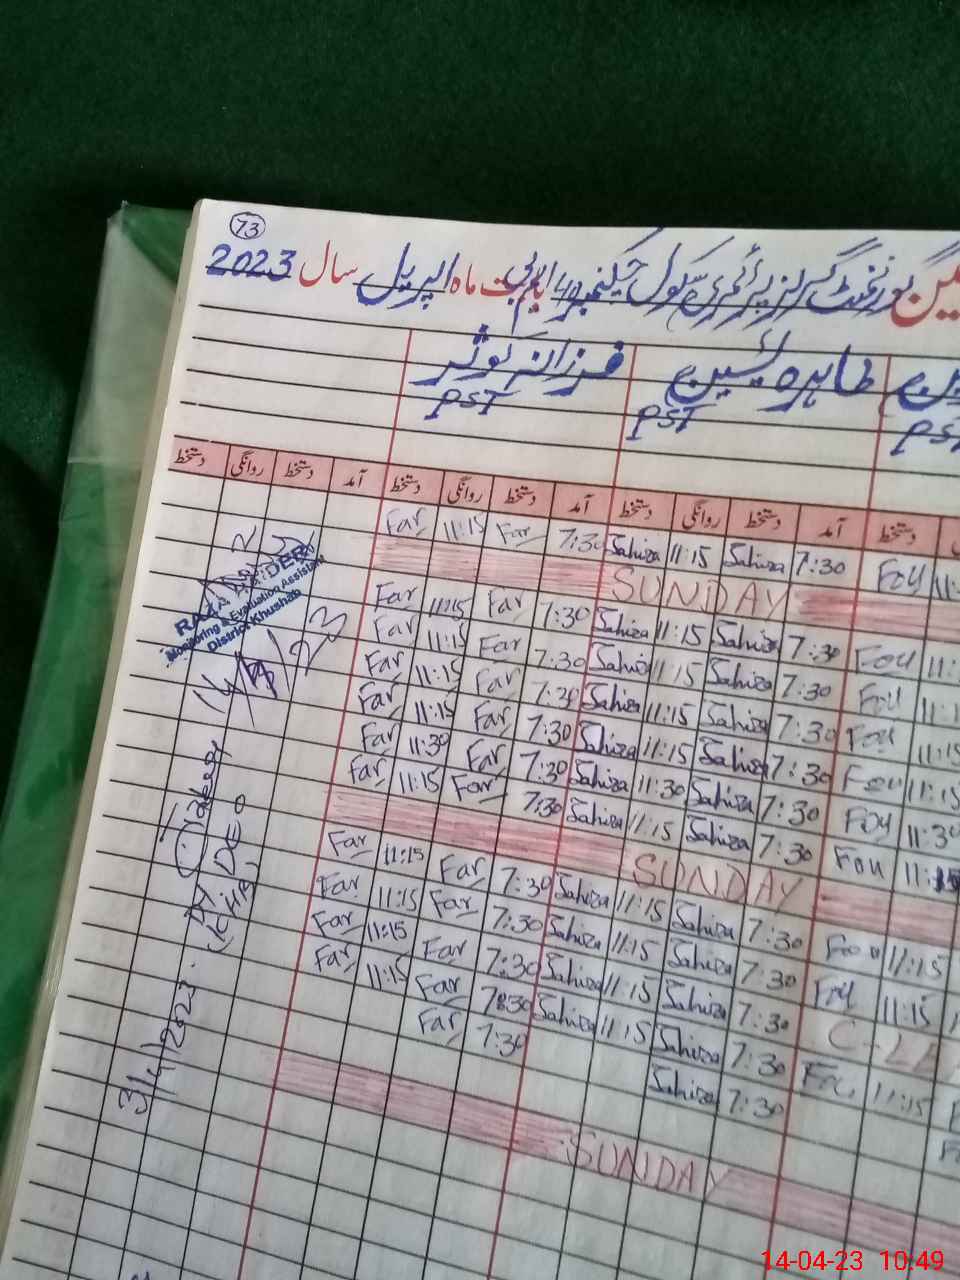 73
گورنمنٹ گرلز پرائمری سکول بابت ماہ اپریل سال 2023
طاہرہ یٰسین فرزانہ کوثر
PST PST PST
دستخط آمد دستخط روانگی دستخط آمد دستخط روانگی دستخط آمد دستخط روانگی دستخط
Far 11:15 Far 7:30 Sahiza 11:15 Sahiza 7:30 Fou
SUNDAY
Far 11:15 Far 7:30 Sahiza 11:15 Sahiza 7:30 Fou
Far 11:15 Far 7:30 Sahiza 11:15 Sahiza 7:30 Fou
Far 11:15 Far 7:30 Sahiza 11:15 Sahiza 7:30 Fou 11:15
Far 11:15 Far 7:30 Sahiza 11:15 Sahiza 7:30 Fou 11:15
Far 11:30 Far 7:30 Sahiza 11:30 Sahiza 7:30 Fou 11:30
Far 11:15 Far 7:30 Sahiza 11:15 Sahiza 7:30 Fou 11:15
SUNDAY
Far 11:15 Far 7:30 Sahiza 11:15 Sahiza 7:30 Fou 11:15
Far 11:15 Far 7:30 Sahiza 11:15 Sahiza 7:30 Fou 11:15
Far 11:15 Far 7:30 Sahiza 11:15 Sahiza 7:30
Far 11:15 Far 7:30 Sahiza 11:15 Sahiza 7:30 Fou 11:15
Far 7:30 Sahiza 7:30
SUNDAY
Monitoring & Evaluation Assistant
District Khushab
14/4/23
Dy DEO
3/4/2023
14-04-23 10:49